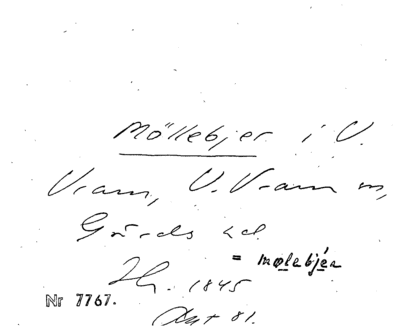 Möllebjer i V.
Vram, V. Vram sn,
Gärds hd.
= mølebjér
1845
Nr 7767.
81.